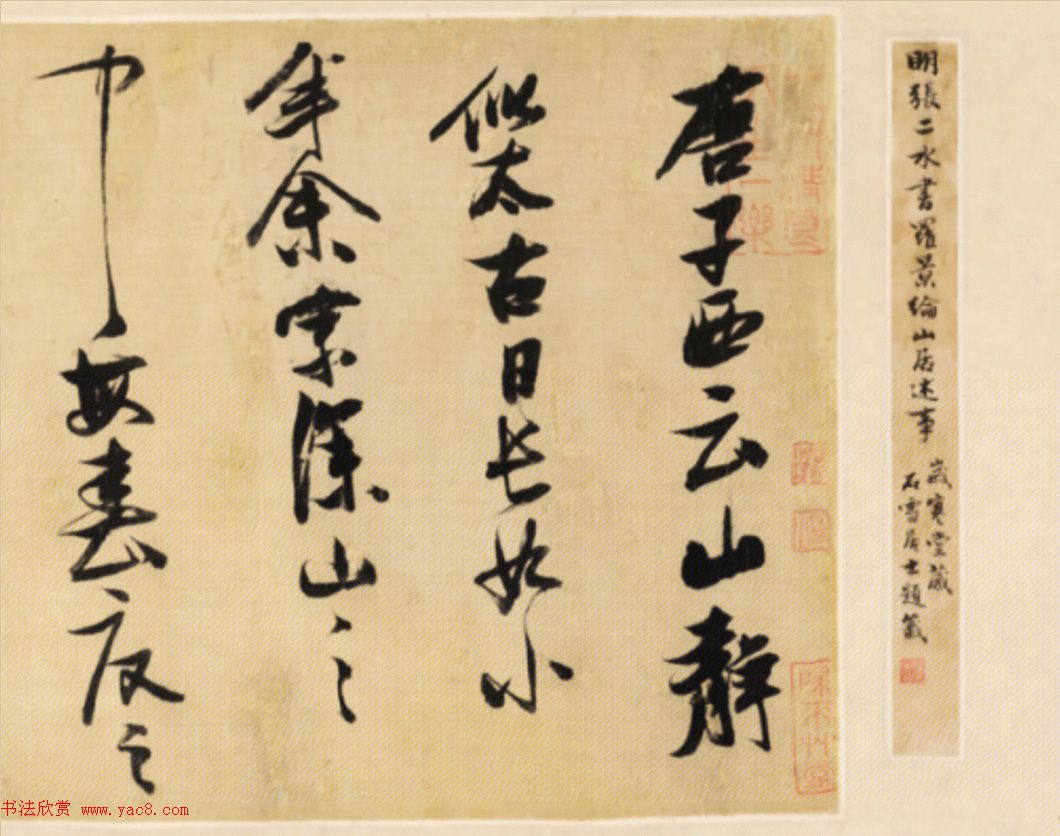 明張二水書羅景綸山居述事
歲寒堂藏
石雪居士題籤
唐子西云山靜
似太古日長如小
年余家深山之
中每春夏之
书法欣赏 www.yac8.com